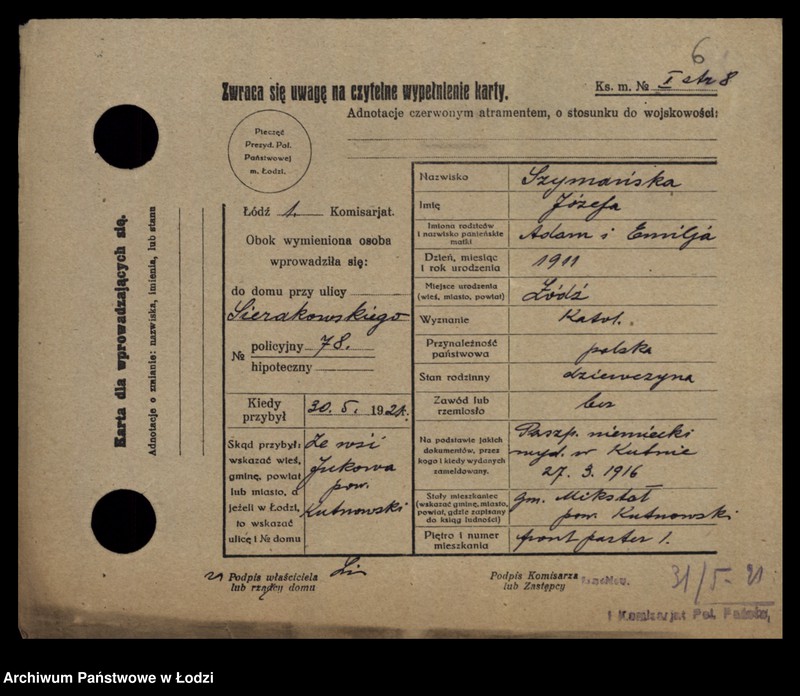 6
Zwraca się uwagę na czytelne wypełnienie karty.
Ks. m. № I str 8
Adnotacje czerwonym atramentem, o stosunku do wojskowości:
Pieczęć
Prezyd. Pol.
Państwowej
m. Łodzi.
Karta dla wprowadzających się.
Adnotacje o zmianie: nazwiska, imienia, lub stanu
Łódź 1. Komisarjat.
Obok wymieniona osoba
wprowadziła się:
do domu przy ulicy
Sierakowskiego
№ policyjny 78.
hipoteczny
Kiedy przybył 30. 5. 1921.
Skąd przybył: Ze wsi
wskazać wieś,
gminę, powiat
lub miasto, a pow.
jeżeli w Łodzi, Kutnowski
to wskazać
ulicę i № domu
Nazwisko Szymańska
Imię Józefa
Imiona rodziców
i nazwisko panieńskie
matki Adam i Emilja
Dzień, miesiąc
i rok urodzenia 1911
Miejsce urodzenia
(wieś, miasto, powiat) Łódź
Wyznanie Katol.
Przynależność
państwowa polska
Stan rodzinny dziewczyna
Zawód lub
rzemiosło bez
Na podstawie jakich
dokumentów, przez
kogo i kiedy wydanych
zameldowany.
Paszp. niemiecki
wyd. w Kutnie
27. 3. 1916
Stały mieszkaniec
(wskazać gminę, miasto,
powiat, gdzie zapisany
do ksiąg ludności)
gm. Mikstał
pow. Kutnowski
Piętro i numer
mieszkania front parter 1.
Podpis właściciela
lub rządcy domu
Podpis Komisarza
lub Zastępcy
31/5-21
I Komisarjat Pol. Państw.
Archiwum Państwowe w Łodzi